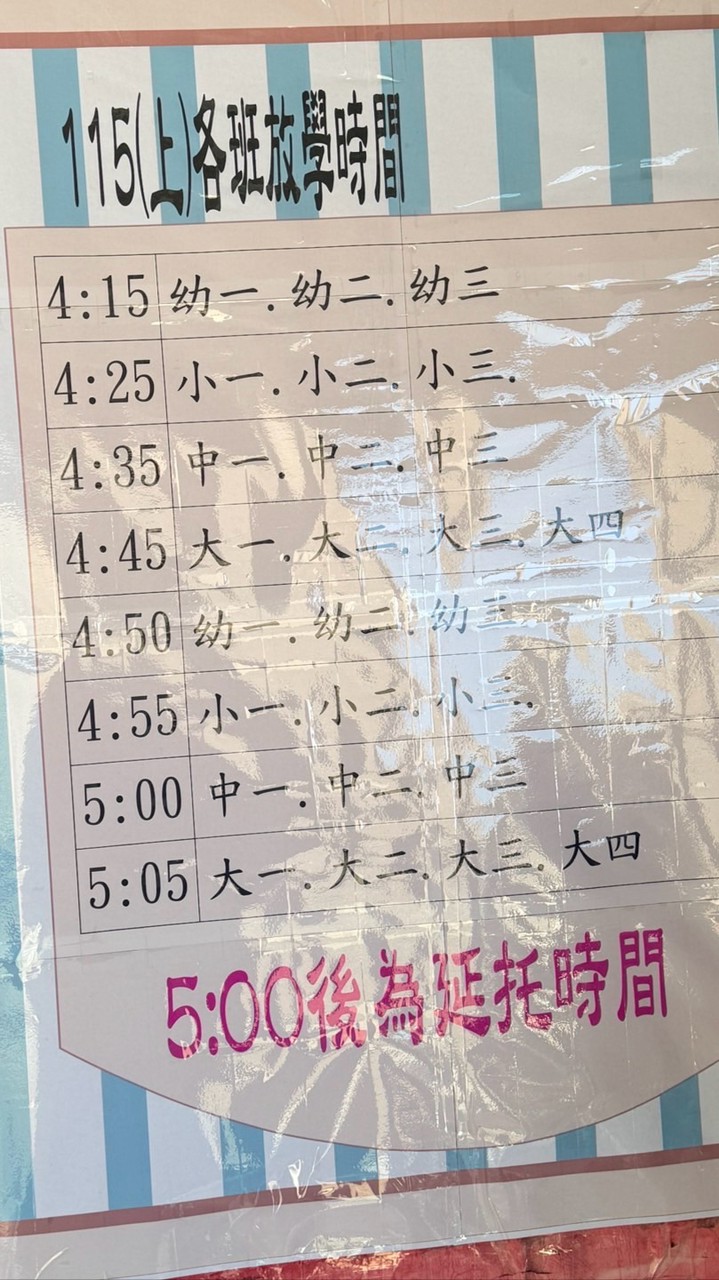 115(上)各班放學時間
4:15 幼一.幼二.幼三
4:25 小一.小二.小三.
4:35 中一.中二.中三
4:45 大一.大二.大三.大四
4:50 幼一.幼二.幼三.
4:55 小一.小二.小三.
5:00 中一.中二.中三
5:05 大一.大二.大三.大四
5:00後為延托時間